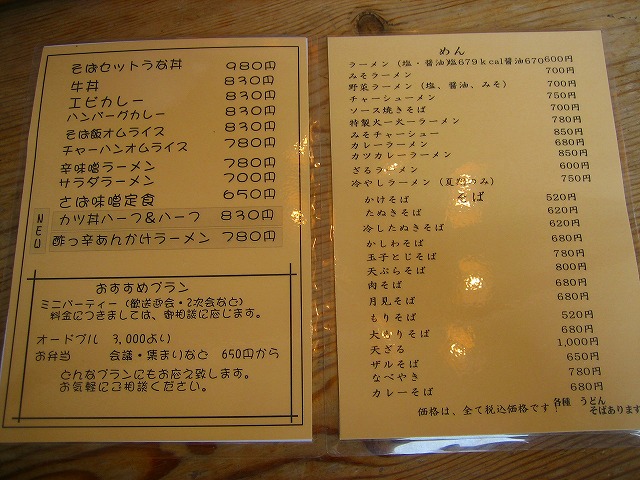 そばセットうな丼 980円
牛丼 830円
エビカレー 830円
ハンバーグカレー 830円
そば飯オムライス 830円
チャーハンオムライス 780円
辛味噌ラーメン 780円
サラダラーメン 700円
さば味噌定食 650円
NEW
カツ丼ハーフ&ハーフ 830円
酢っ辛あんかけラーメン 780円
おすすめプラン
ミニパーティー(歓送迎会・2次会など)
料金につきましては、御相談に応じます。
オードブル 3,000より
お弁当 会議・集まりなど 650円から
どんなプランにもお応え致します。
お気軽にご相談ください。
めん
ラーメン (塩・醤油)塩679kcal醤油670 600円
みそラーメン 700円
野菜ラーメン (塩、醤油、みそ) 700円
チャーシューメン 750円
ソース焼きそば 700円
特製火ー火ーラーメン 780円
みそチャーシュー 850円
カレーラーメン 680円
カツカレーラーメン 850円
ざるラーメン 600円
冷やしラーメン (夏だのみ) 750円
そば
かけそば 520円
たぬきそば 620円
冷したぬきそば 620円
かしわそば 680円
玉子とじそば 780円
天ぷらそば 800円
肉そば 680円
月見そば 680円
もりそば 520円
大もりそば 680円
天ざる 1,000円
ザルそば 650円
なべやき 780円
カレーそば 680円
価格は、全て税込価格です!
各種 うどん
そばあります